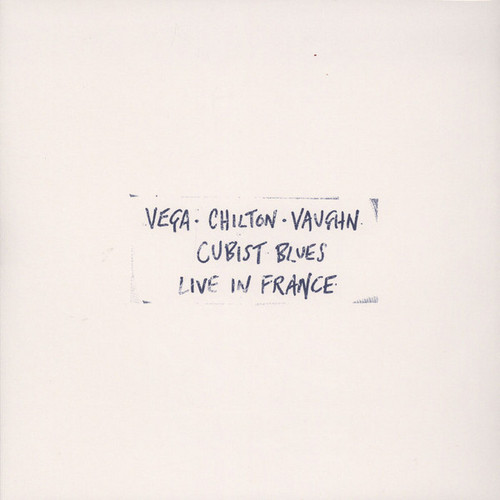 VEGA · CHILTON · VAUGHN
CUBIST BLUES
LIVE IN FRANCE